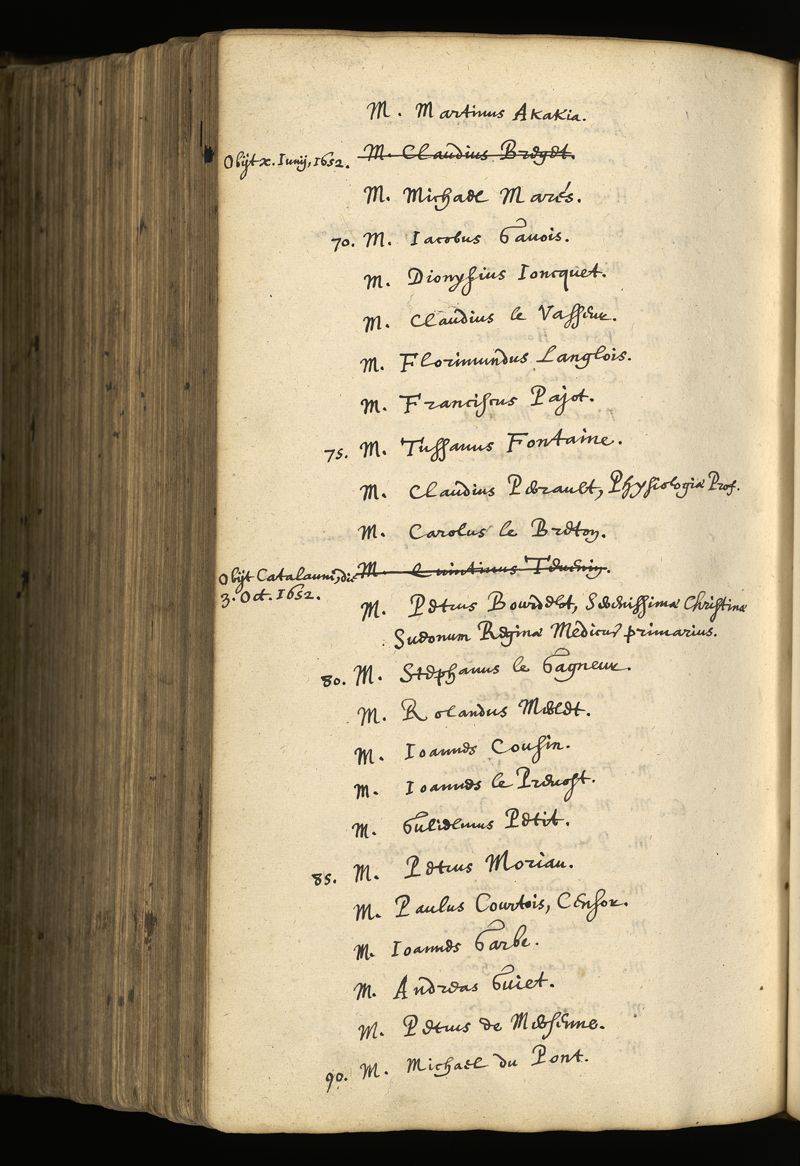 M. Martinus Akakia.
Obijt x. Iunij, 1652. M. Claudius Breget.
M. Michael Marés.
70. M. Iacobus Gavois.
M. Dionysius Ioncquet.
M. Claudius le Vasseur.
M. Florimundus Langlois.
M. Franciscus Pajot.
75. M. Tussanus Fontaine.
M. Claudius Perault, Physiologiæ Prof.
M. Carolus le Breton.
Obijt Catalauni, die M. Quintinus
3. Oct. 1652.
M. Petrus Bourdelot, Serenissimæ Christinæ
Sueonum Reginæ Medicus primarius.
80. M. Stephanus le Gagneur.
M. Rolandus Merlet.
M. Ioannes Cousin.
M. Ioannes le Prevost.
M. Gulielmus Petit.
85. M. Petrus Moriau.
M. Paulus Courtois, Censor.
M. Ioannes Garbe.
M. Andreas Guiet.
M. Petrus de Mersenne.
90. M. Michael du Pont.